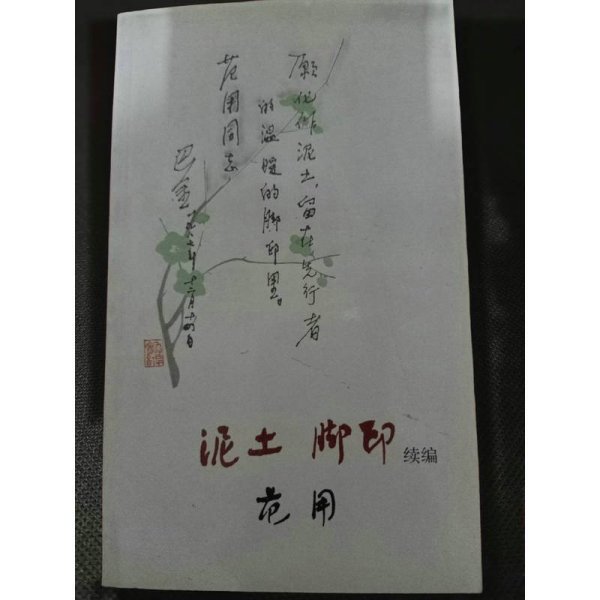 愿化作泥土，留在先行者
的温暖的脚印里。
范用同志
巴金
泥土 脚印 续编
范用